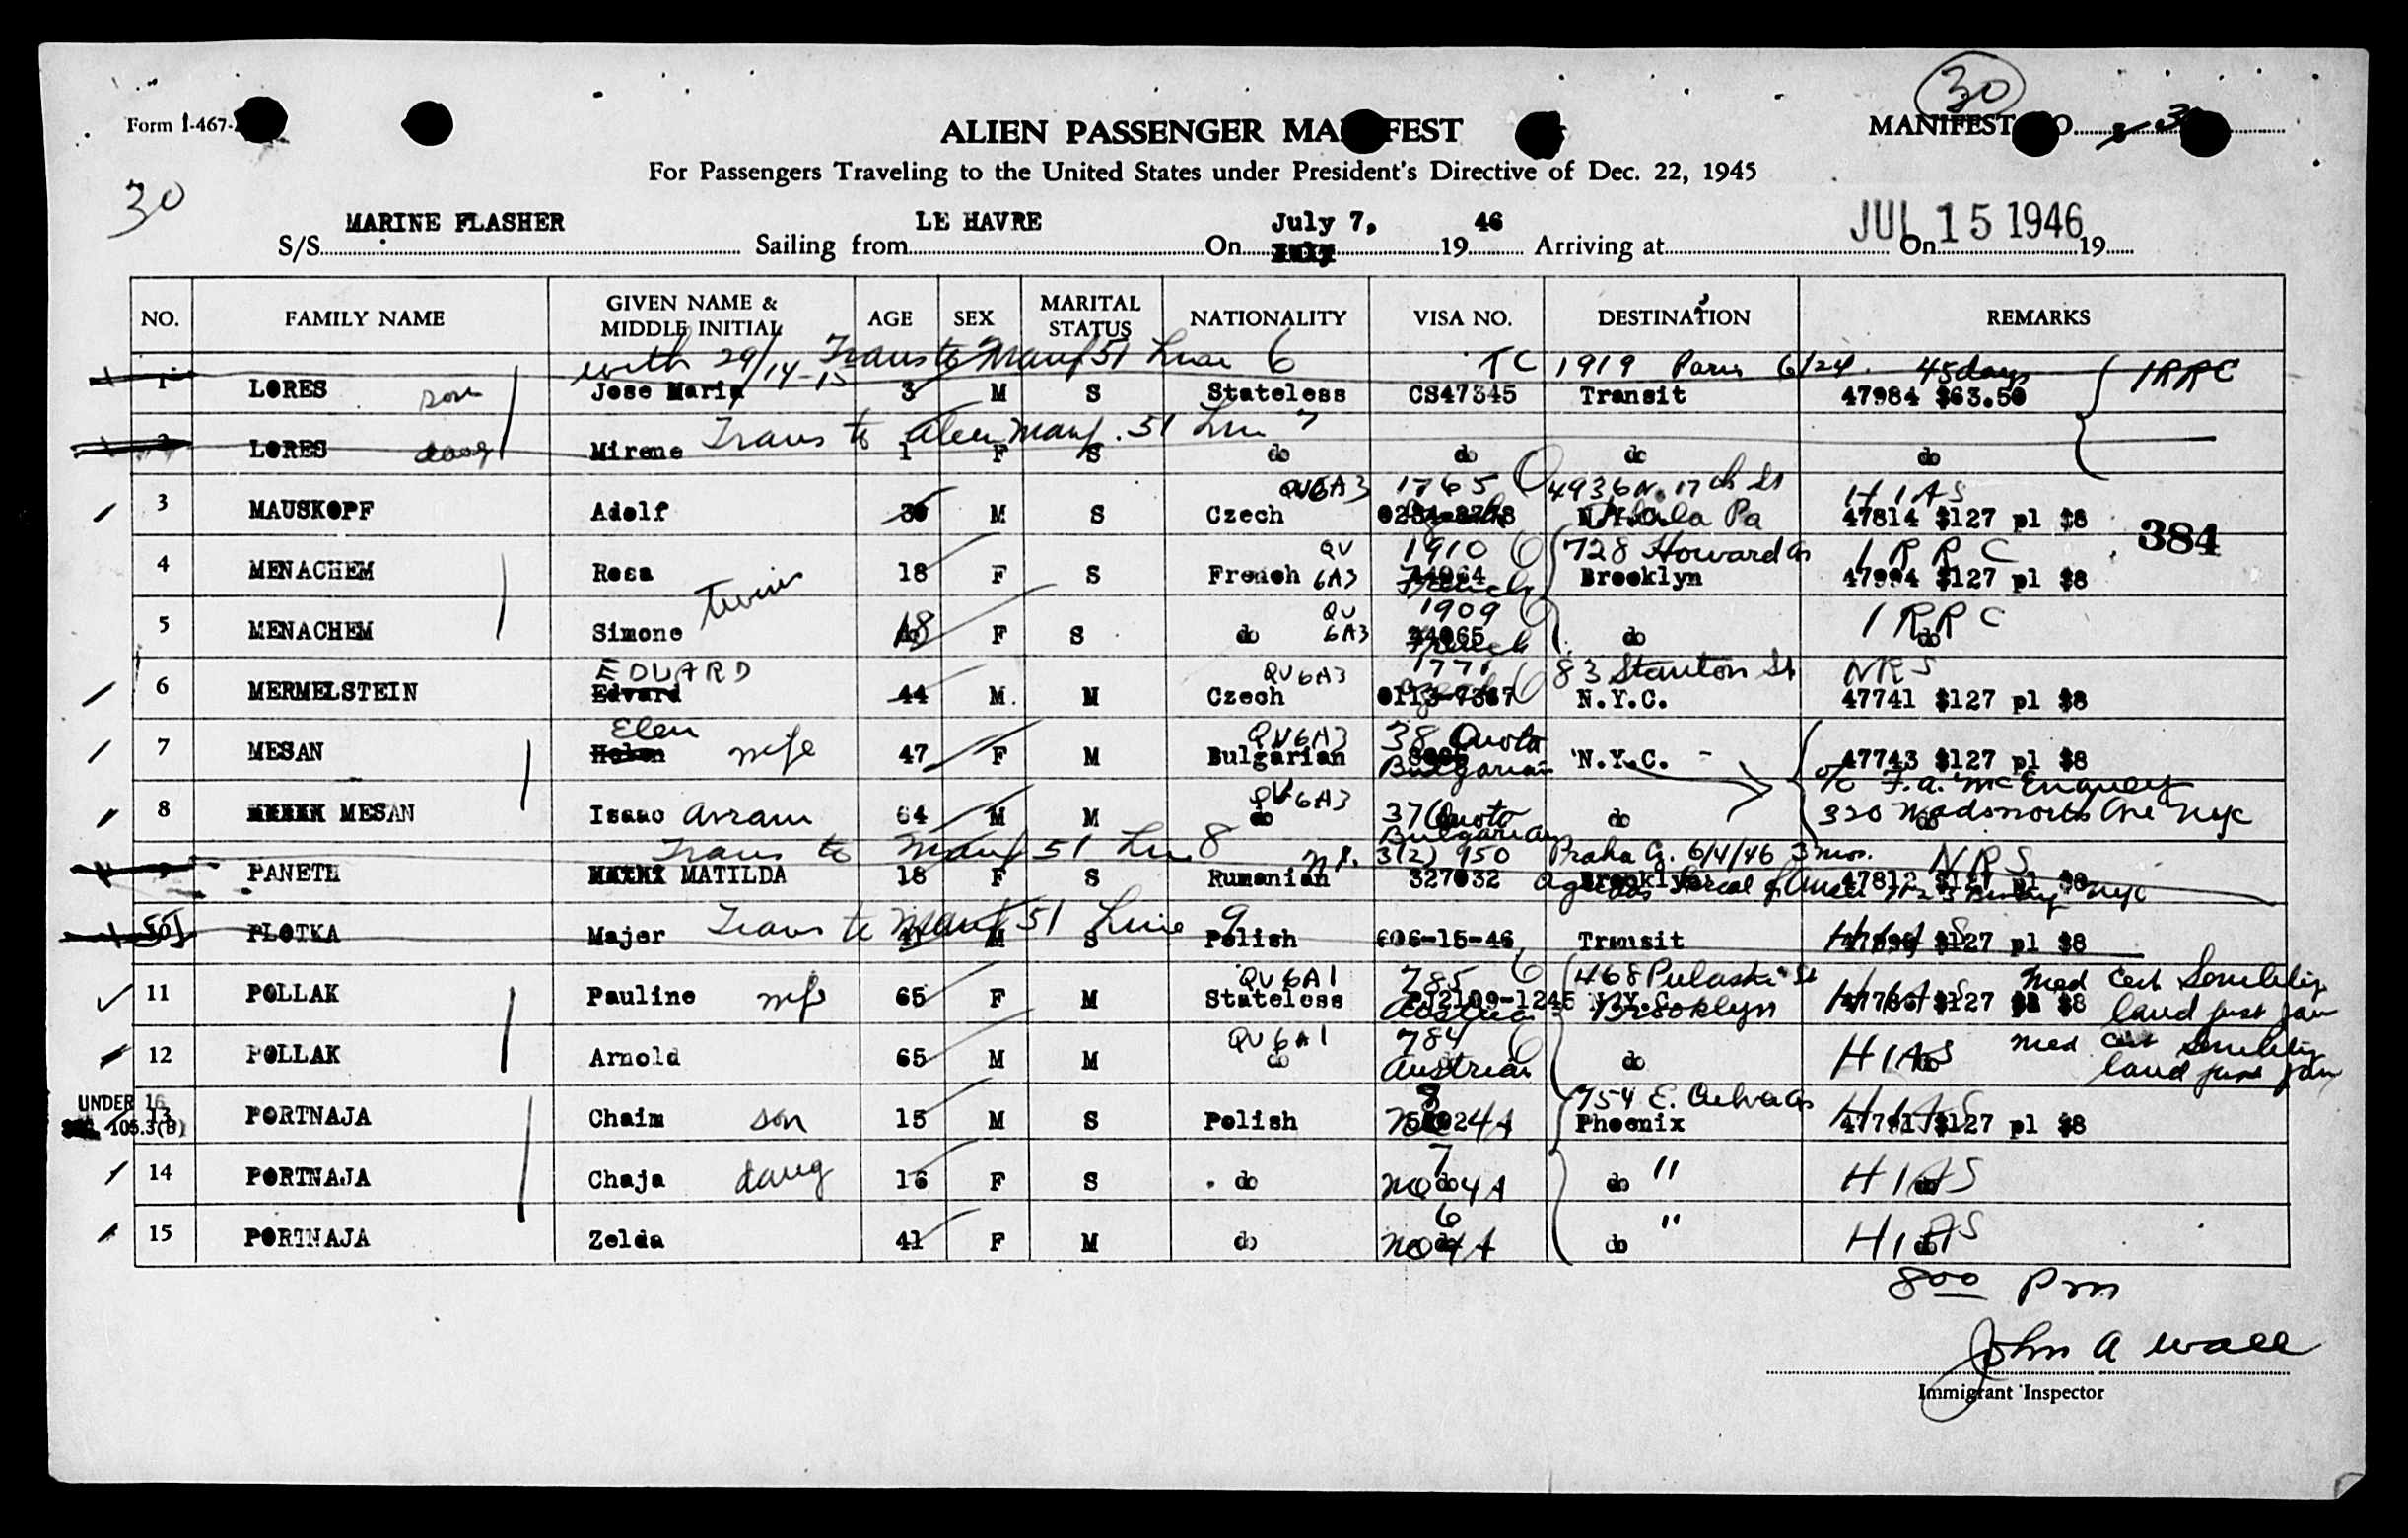 30
Form I-467-
ALIEN PASSENGER MANIFEST
MANIFEST NO. 3
For Passengers Traveling to the United States under President's Directive of Dec. 22, 1945
30
S/S MARINE FLASHER Sailing from LE HAVRE On July 7, 1946 Arriving at On JUL 15 1946 19
NO. FAMILY NAME GIVEN NAME & MIDDLE INITIAL AGE SEX MARITAL STATUS NATIONALITY VISA NO. DESTINATION REMARKS
with 29/14-15 Trans to Manf 51 Line 6 TC 1919 Paris 6/24. 45 days IRRC
1 LORES son Jose Maria 3 M S Stateless CS47345 Transit 47984 $63.50
Trans to alien Manf. 51 Line 7
2 LORES daug Mirene 1 F S do do do do
QV6A3 1765 4936 N. 17th St HIAS
3 MAUSKOPF Adolf M S Czech Phila Pa 47814 $127 pl $8
384
QV 1910 728 Howard Av IRRC
4 MENACHEM Rosa 18 F S French 6A3 French Brooklyn 47994 $127 pl $8
twins
QV 1909 IRRC
5 MENACHEM Simone 18 F S do 6A3 French do do
EDUARD QV6A3 1771 83 Stanton St NRS
6 MERMELSTEIN Edvard 44 M. M Czech 0113-7367 N.Y.C. 47741 $127 pl $8
Elen QV6A3 38 Quota
7 MESAN Helen wife 47 F M Bulgarian Bulgarian N.Y.C. 47743 $127 pl $8
QV6A3 c/o F.A.
8 MESAN Isaac Avram 64 M M do 37 Quota Bulgarian do 320 Ave NYC
Trans to Manf 51 Line 8 3(2) 950 Praha Cz. 6/4/46 3 mos. NRS
9 PANETH MATILDA 18 F S Rumanian 327032 Brooklyn 47812 $127 pl $8
Trans to Manf 51 Line 9 HIAS
10 PLOTKA Majer 41 M S Polish 606-15-46 Transit $127 pl $8
QV6A1 785 468 Pulaski St HIAS Med Cert Senility
11 POLLAK Pauline wife 65 F M Stateless Brooklyn $127 $8 land
QV6A1 784 Med Cert Senility
12 POLLAK Arnold 65 M M do Austrian do HIAS land
UNDER 16
8 754 E. HIAS
13 PORTNAJA Chaim son 15 M S Polish Phoenix 47791 $127 pl $8
105.3(B)
7
14 PORTNAJA Chaja daug 16 F S do NQ 4A do " HIAS
6
15 PORTNAJA Zelda 41 F M do NQ 4A do " HIAS
8 00 Pm
John A Wall
Immigrant Inspector